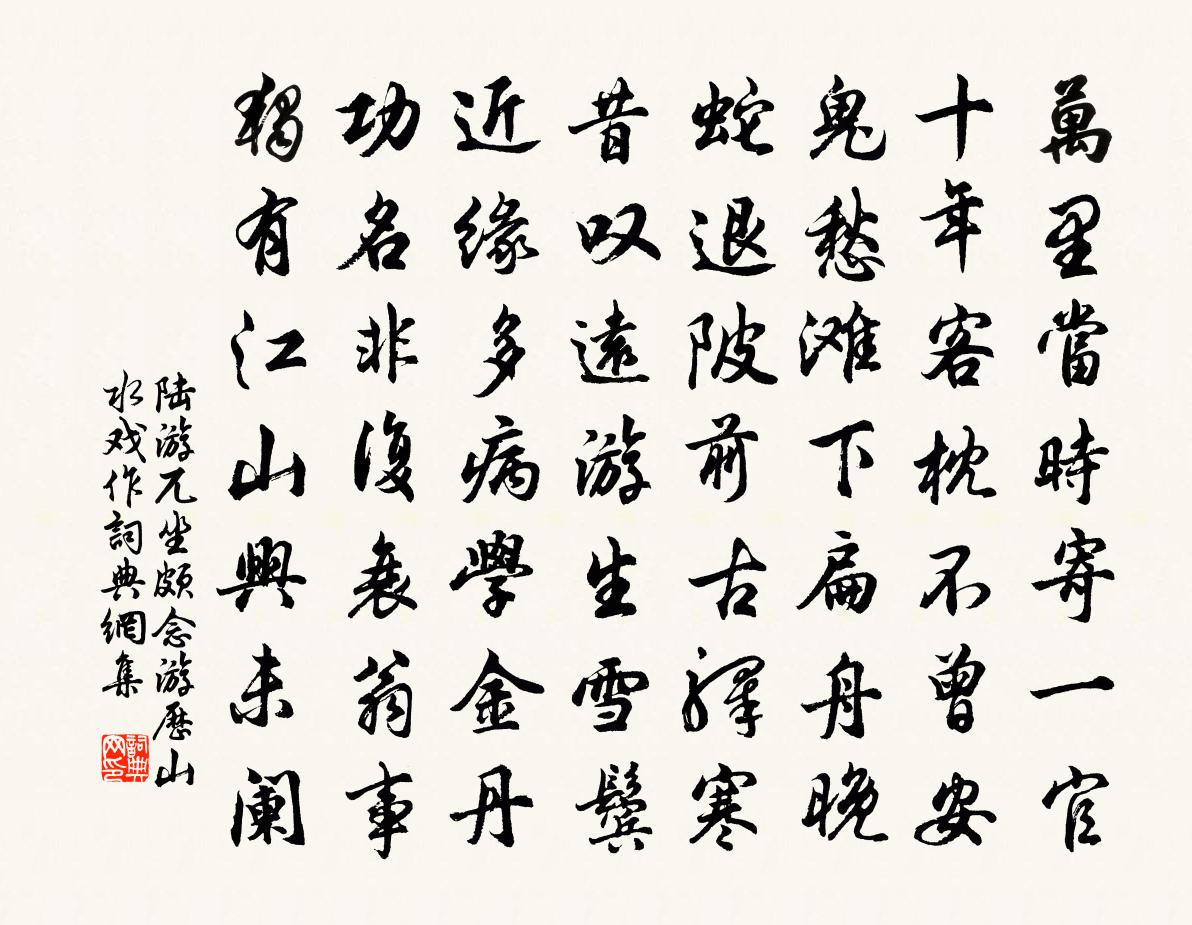 萬里當時寄一官
十年客枕不曾安
鬼愁滩下扁舟晚
蛇退陂前古驛寒
昔叹遠游生雪鬢
近緣多病學金丹
功名非復衰翁事
獨有江山興未阑
陆游兀坐頗念游歷山
水戏作詞典網集
詞典
网印